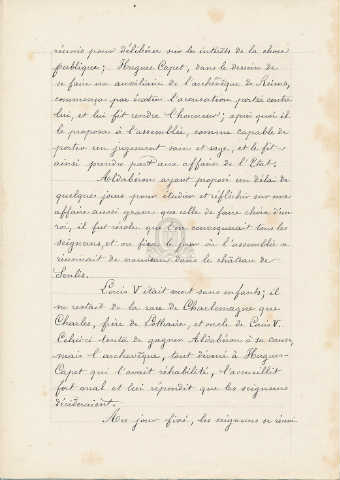 réunis pour délibérer sur les intérêts de la chose
publique; Hugues Capet, dans le dessein de
se faire un auxiliaire de l'archevêque de Reims,
commença par écarter l'accusation portée contre
lui, et lui fit rendre l'honneur; après quoi il
le proposa à l'assemblée, comme capable de
porter un jugement sain et sage, et le fit
ainsi prendre part aux affaires de l'Etat.
Aldabéron ayant proposé un délai de
quelques jours pour étudier et réfléchir sur une
affaire aussi grave que celle de faire choix d'un
roi, il fut résolu que l'on convoquerait tous les
seigneurs, et on fixa le jour où l'assemblée se
réunirait de nouveau dans le château de
Senlis.
Louis V était mort sans enfants; il
ne restait de la race de Charlemagne que
Charles, frère de Lothaire, et oncle de Louis V.
Celui-ci tenta de gagner Aldabéron à sa cause,
mais l'archevêque, tout dévoué à Hugues-
Capet qui l'avait réhabilité, l'accueillit
fort mal et lui répondit que les seigneurs
décideraient.
Au jour fixé, les seigneurs se réuni